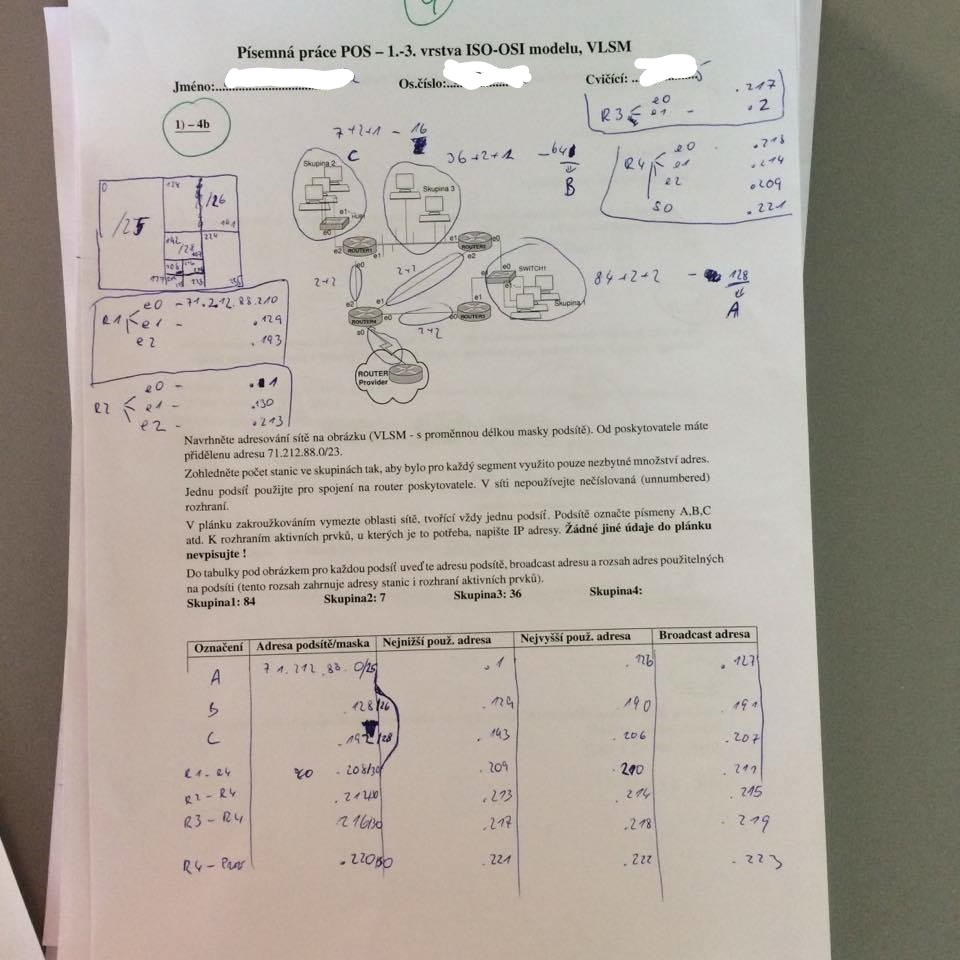 Písemná práce POS – 1.-3. vrstva ISO-OSI modelu, VLSM
Jméno:
Os.číslo:
Cvičící:
1) – 4b
R3 e0 .217
e1 - .2
7+2+1 - 16
C
36+2+1 - 64
B
R4 e0 . .218
e1 .214
e2 .209
s0 .221
Skupina 2
Skupina 3
0
128
/25
/26
192
/28
224
HUB1
e1
e0
e2
ROUTER1
e1
e0
e1
e0
e2
SWITCH1
e0
Skupina 1
84+2+2 - 128
A
2+2
2+2
2+2
e2
e1
e1
e0
ROUTER4
e0
ROUTER3
s0
ROUTER
Provider
R1 e0 - 71.212.88.210
e1 - .129
e2 .193
R2 e0 - .1
e1 - .130
e2 - .213
Navrhněte adresování sítě na obrázku (VLSM - s proměnnou délkou masky podsítě). Od poskytovatele máte
přidělenu adresu 71.212.88.0/23.
Zohledněte počet stanic ve skupinách tak, aby bylo pro každý segment využito pouze nezbytné množství adres.
Jednu podsíť použijte pro spojení na router poskytovatele. V síti nepoužívejte nečíslovaná (unnumbered)
rozhraní.
V plánku zakroužkováním vymezte oblasti sítě, tvořící vždy jednu podsíť. Podsítě označte písmeny A,B,C
atd. K rozhraním aktivních prvků, u kterých je to potřeba, napište IP adresy. Žádné jiné údaje do plánku
nevpisujte !
Do tabulky pod obrázkem pro každou podsíť uveďte adresu podsítě, broadcast adresu a rozsah adres použitelných
na podsíti (tento rozsah zahrnuje adresy stanic i rozhraní aktivních prvků).
Skupina1: 84 Skupina2: 7 Skupina3: 36 Skupina4:
Označení Adresa podsítě/maska Nejnižší použ. adresa Nejvyšší použ. adresa Broadcast adresa
A 71.212.88.0/25 .1 .126 .127
B .128/26 .129 .190 .191
C .192/28 .193 .206 .207
R1-R4 .208/30 .209 .210 .211
R2-R4 .212/30 .213 .214 .215
R3-R4 216/30 .217 .218 .219
R4-Prov .220/30 .221 .222 .223